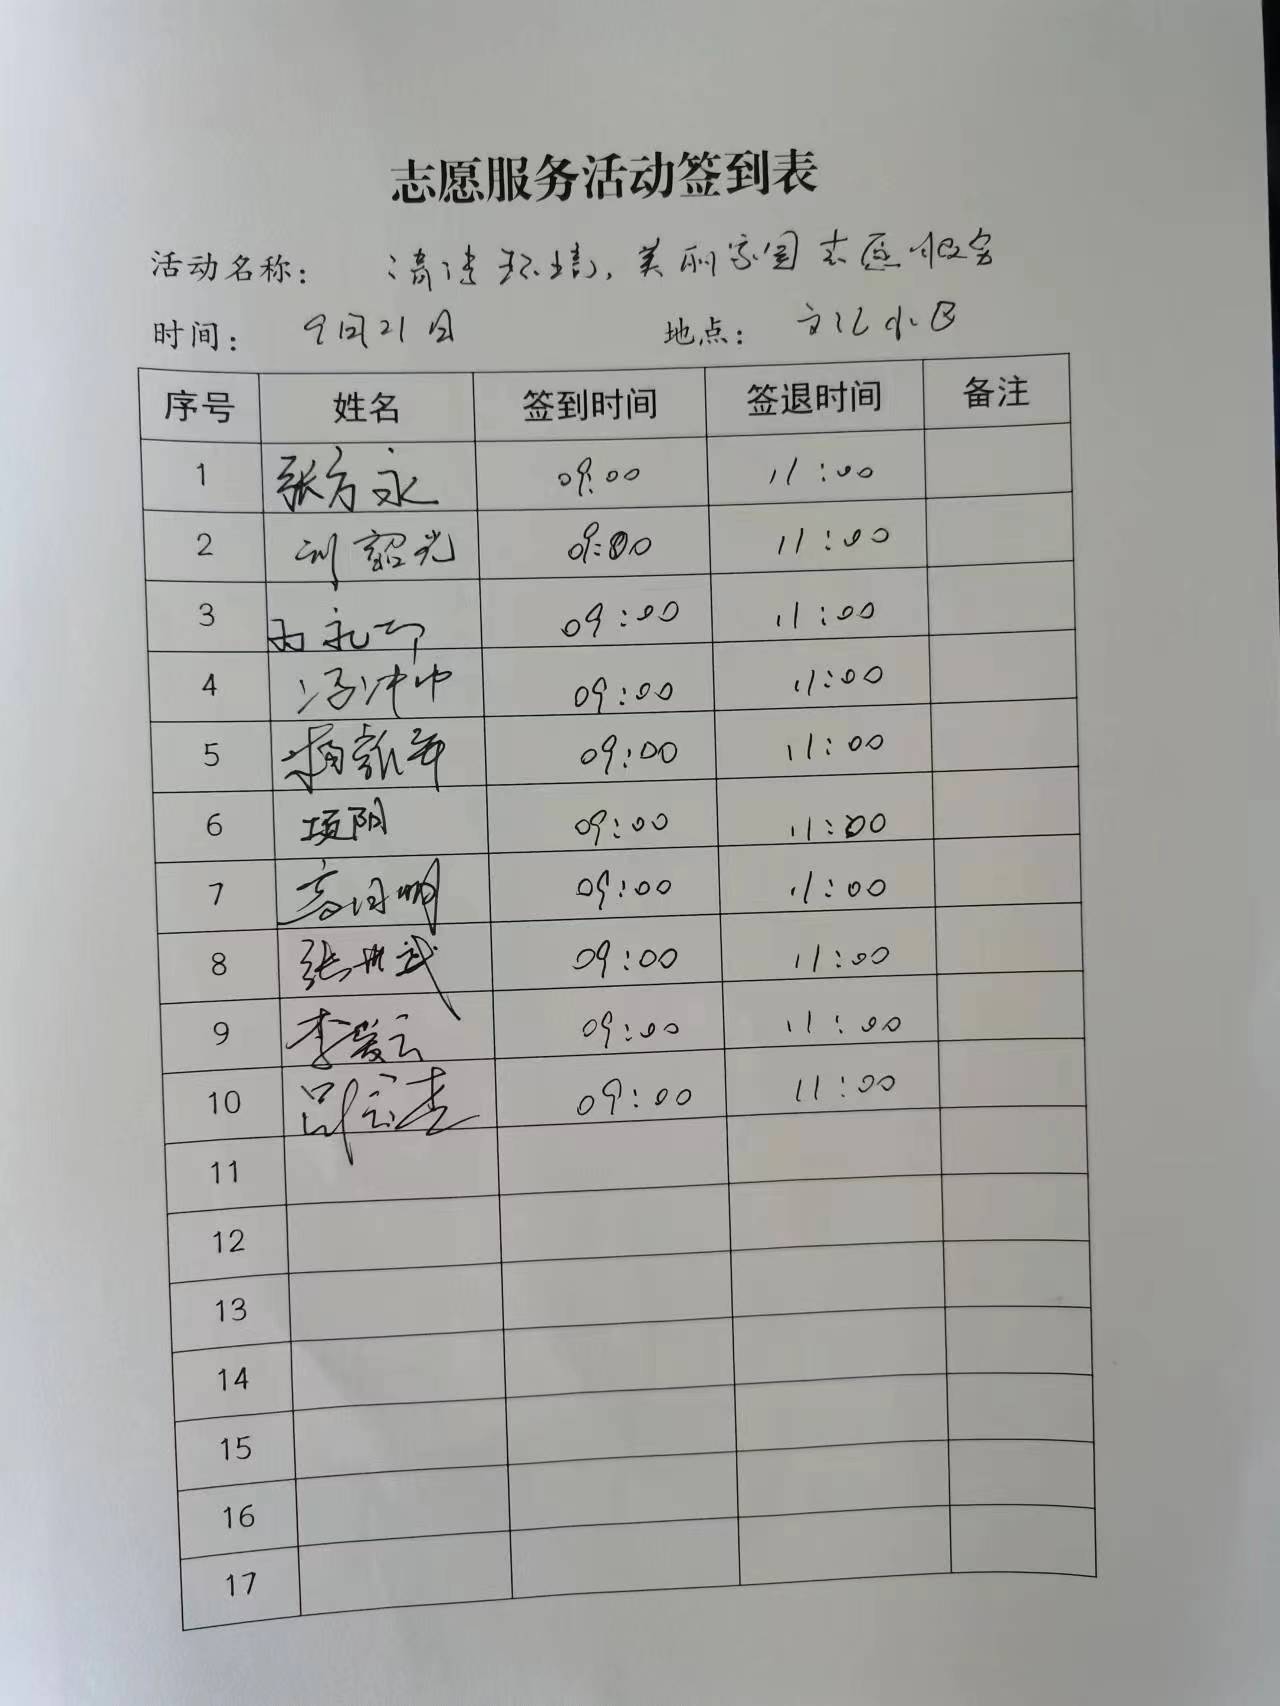 志愿服务活动签到表
活动名称： 清洁环境，美丽家园志愿服务
时间： 9月21日 地点： 文化小区
序号 姓名 签到时间 签退时间 备注
1 张方永 09:00 11:00
2 刘韶光 09:00 11:00
3 09:00 11:00
4 冯冲中 09:00 11:00
5 09:00 11:00
6 项阳 09:00 11:00
7 高同明 09:00 11:00
8 张世武 09:00 11:00
9 李爱云 09:00 11:00
10 09:00 11:00
11
12
13
14
15
16
17